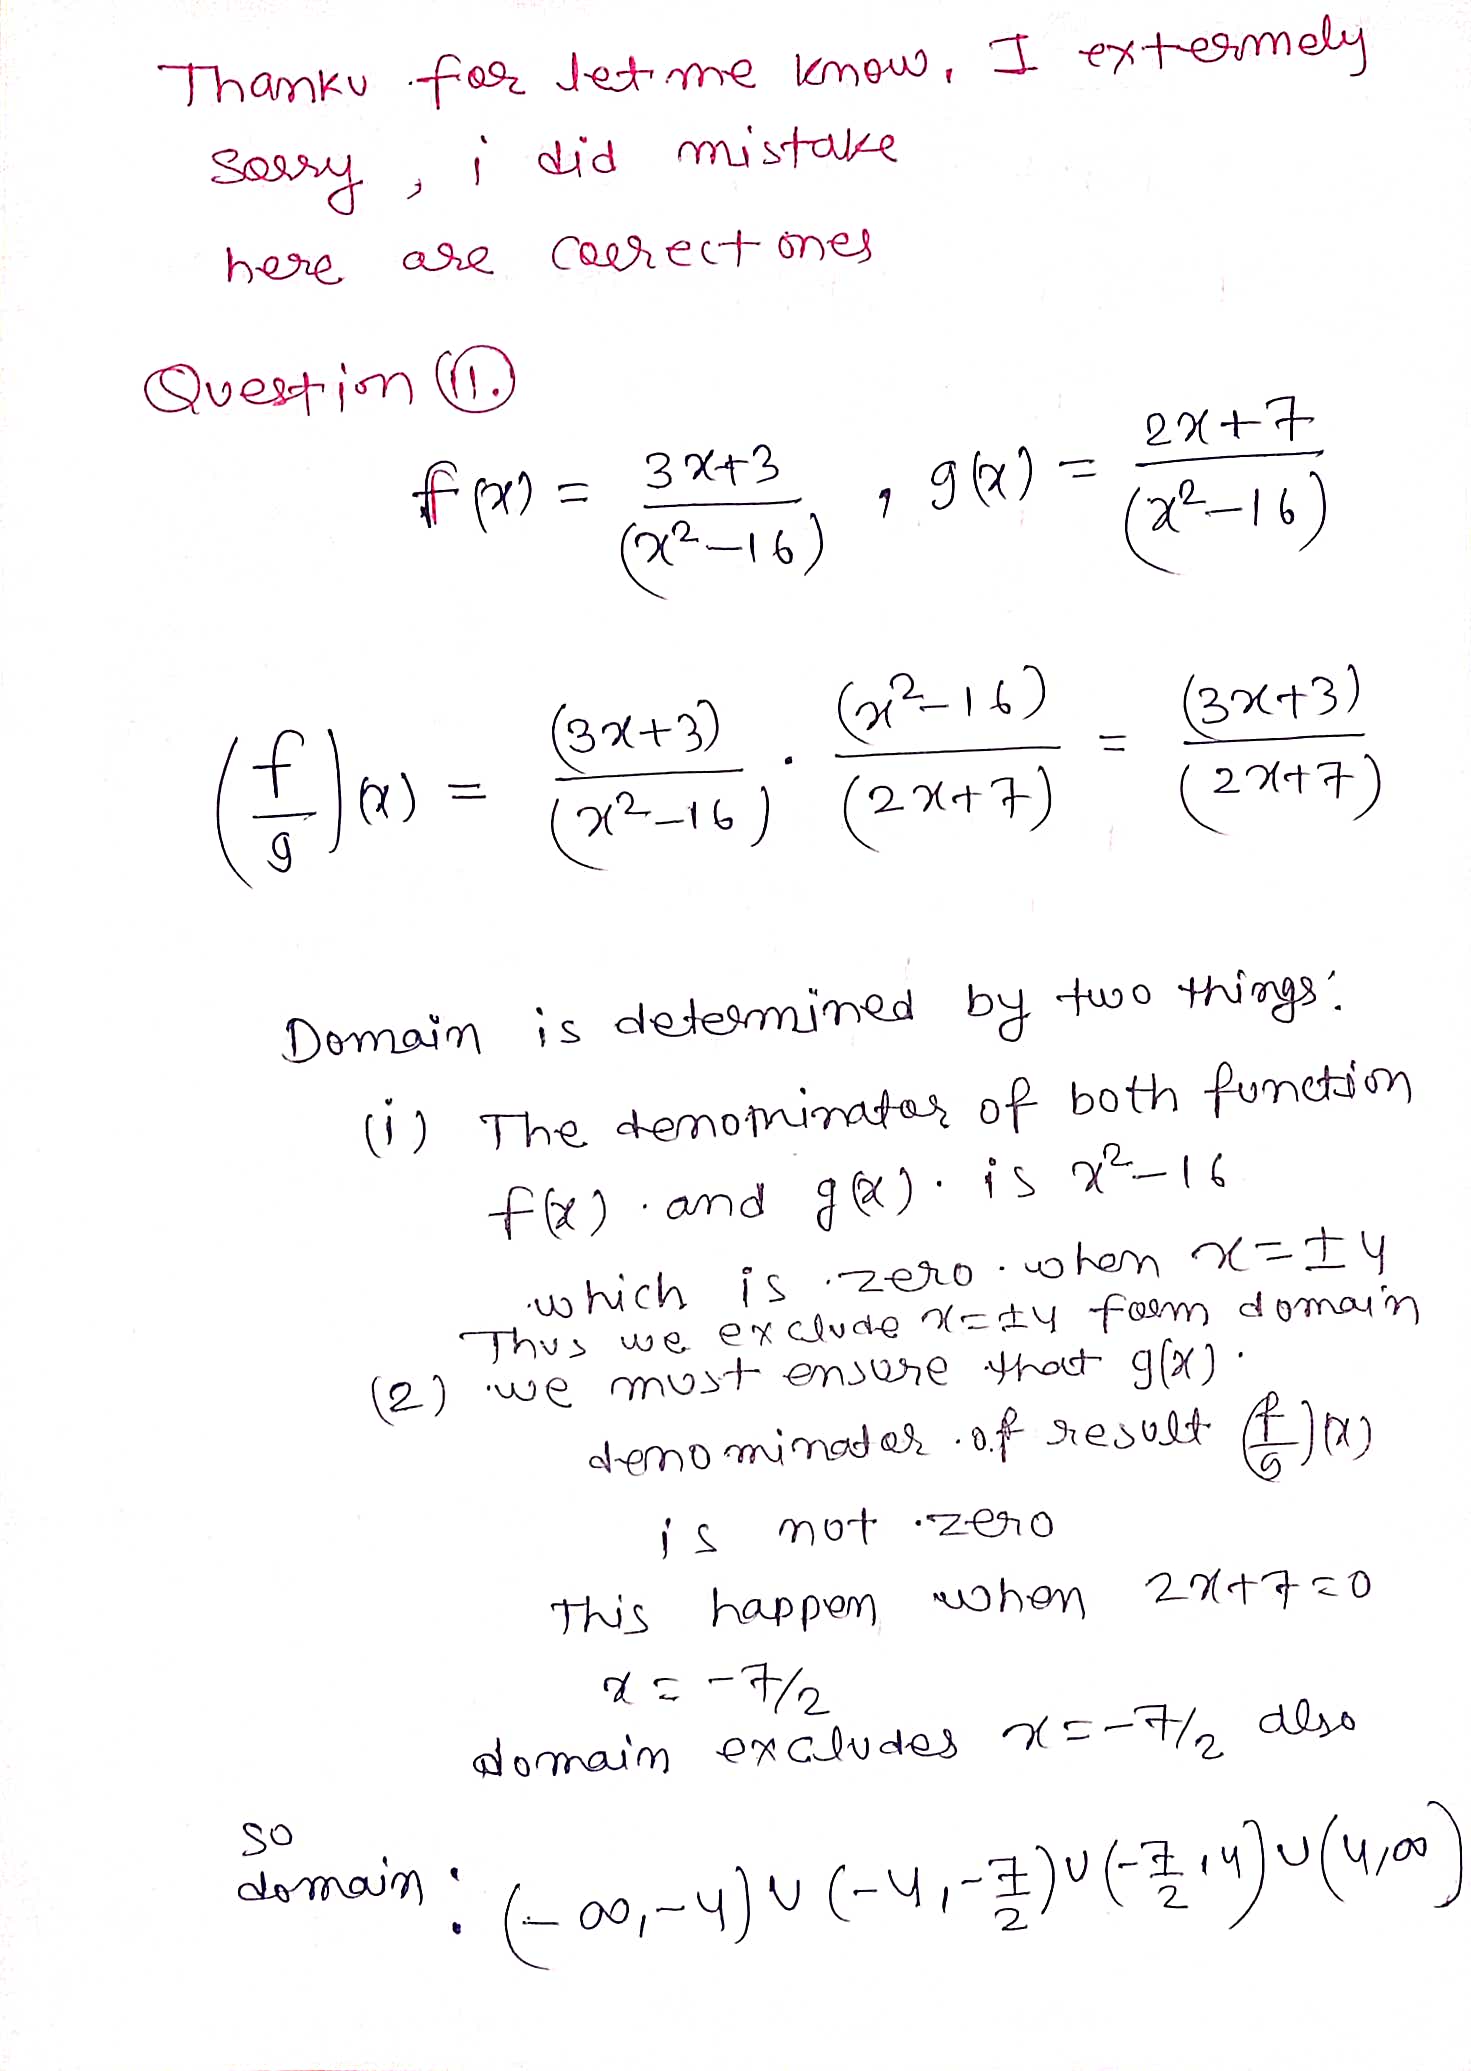 Thanku for let me know, I extermely
sorry, i did mistake
here are correct ones
Question 11.
f(x) = 3x+3/(x²-16) , g(x) = 2x+7/(x²-16)
(f/g)(x) = (3x+3)/(x²-16) · (x²-16)/(2x+7) = (3x+3)/(2x+7)
Domain is determined by two things:
(i) The denominator of both function
f(x) and g(x) is x²-16
which is zero when x=±4
Thus we exclude x=±4 form domain
(2) we must ensure that g(x)
denominator of result (f/g)(x)
is not zero
This happen when 2x+7=0
x = -7/2
domain excludes x=-7/2 also
so
domain: (-∞,-4)∪(-4,-7/2)∪(-7/2,4)∪(4,∞)